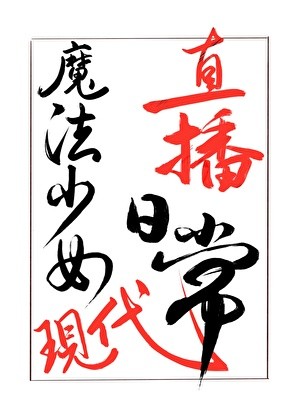 直播
日常
魔法少女
現代